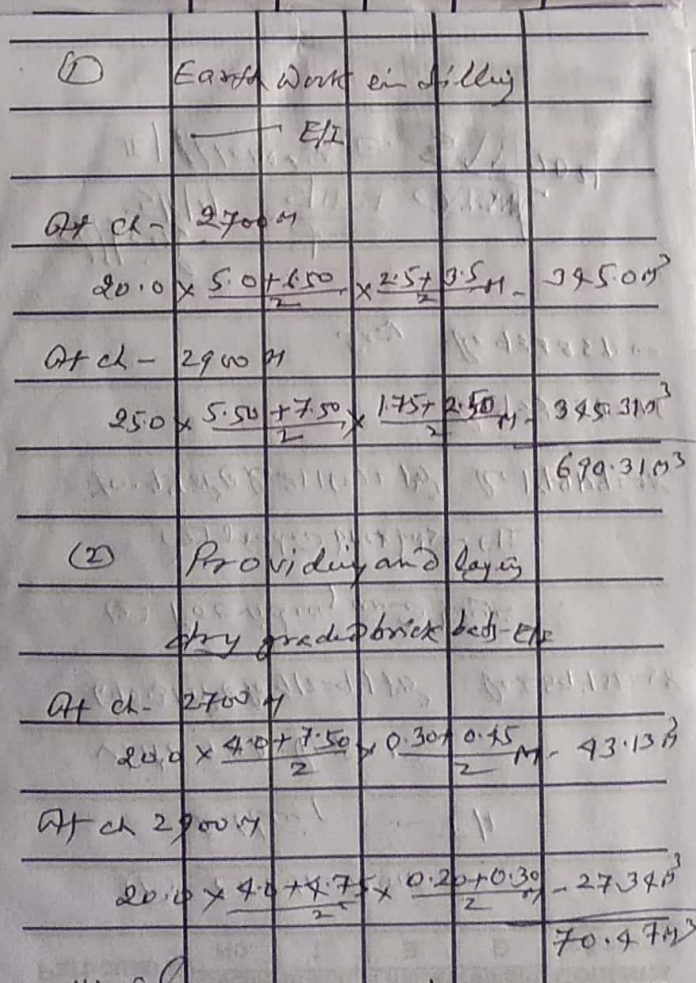 (1) Earth Work in filling
— E/I
At ch - 2700 M
20.0 x (5.0+6.50)/2 x (2.5+3.5)/2 M - 345.0 M³
At ch - 2900 M
25.0 x (5.50+7.50)/2 x (1.75+2.50)/2 M - 345.31 M³
690.31 M³
(2) Providing and laying
dry graded brick bats - E/I
At ch - 2700 M
20.0 x (4.0+7.50)/2 x (0.30+0.45)/2 M - 43.13 M³
At ch 2900 M
20.0 x (4.0+4.75)/2 x (0.20+0.30)/2 M - 27.34 M³
70.47 M³